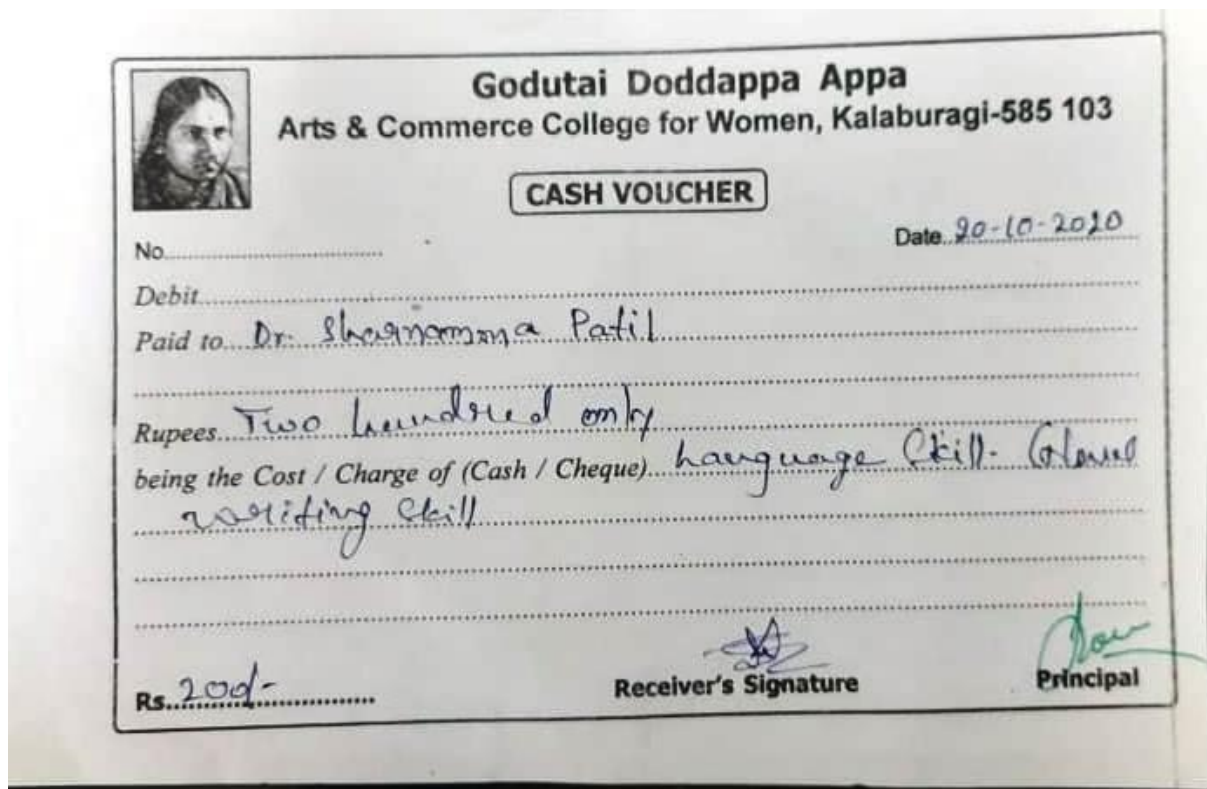 Godutai Doddappa Appa
Arts & Commerce College for Women, Kalaburagi-585 103
CASH VOUCHER
No.
Date 20-10-2020
Debit
Paid to Dr. Sharnamma Patil
Rupees Two hundred only
being the Cost / Charge of (Cash / Cheque) Language Skill-
writing Skill
Rs. 200/- Receiver's Signature Principal